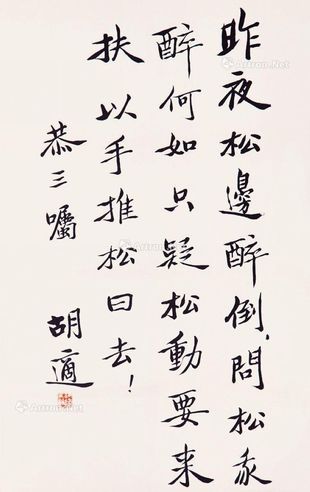 昨夜松邊醉倒,問松我
醉何如只疑松動要来
扶以手推松曰去!
恭三囑
胡適
Artron.Net